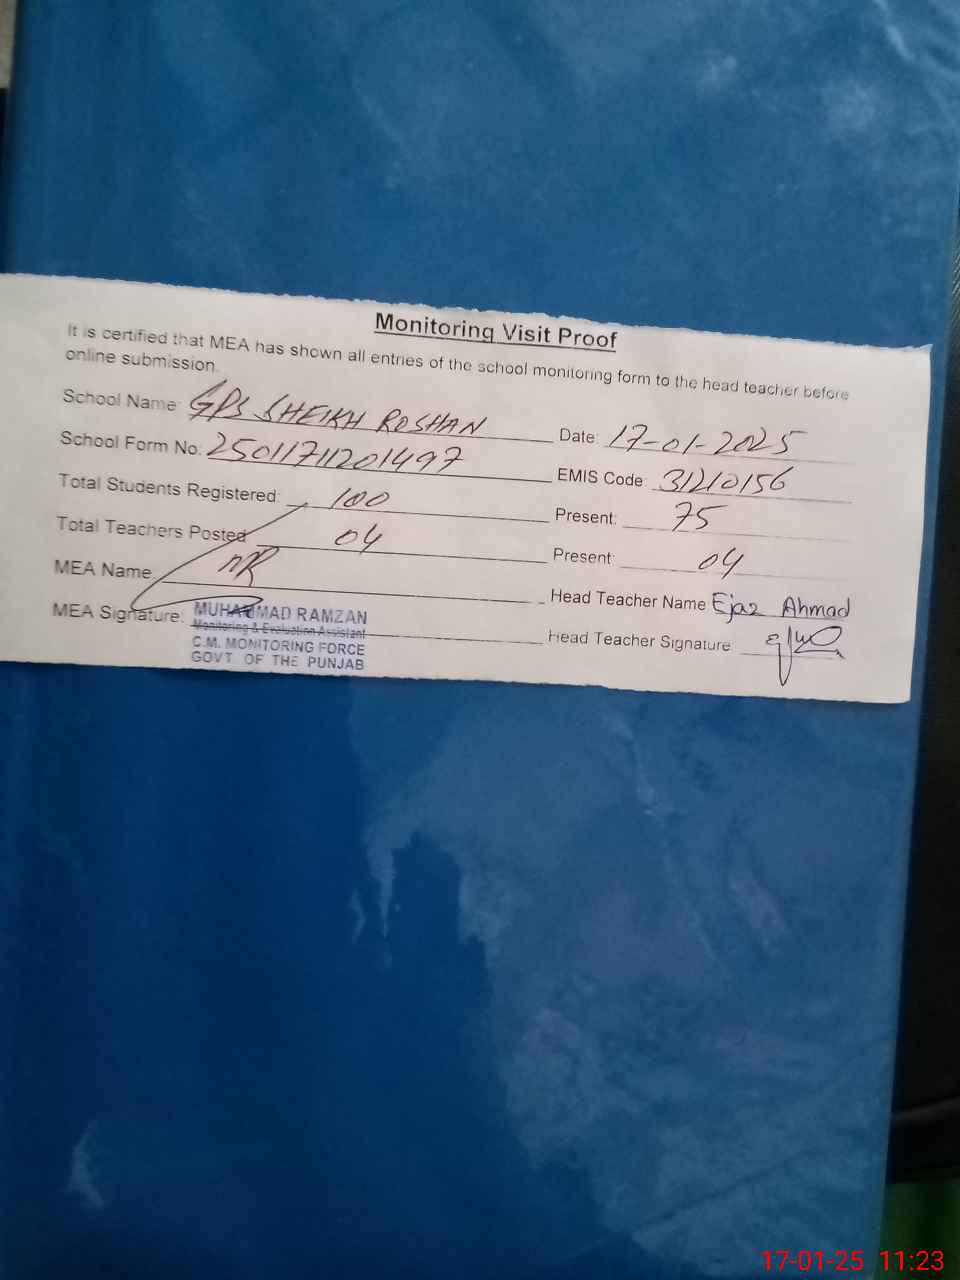 Monitoring Visit Proof
It is certified that MEA has shown all entries of the school monitoring form to the head teacher before
online submission.
School Name: GPS SHEIKH ROSHAN Date: 17-01-2025
School Form No: 25011711201497 EMIS Code: 31210156
Total Students Registered: 100 Present: 75
Total Teachers Posted 04 Present: 04
MEA Name Head Teacher Name Ejaz Ahmad
MEA Signature: Head Teacher Signature
MUHAMMAD RAMZAN
Monitoring & Evaluation Assistant
C.M. MONITORING FORCE
GOVT. OF THE PUNJAB
17-01-25 11:23